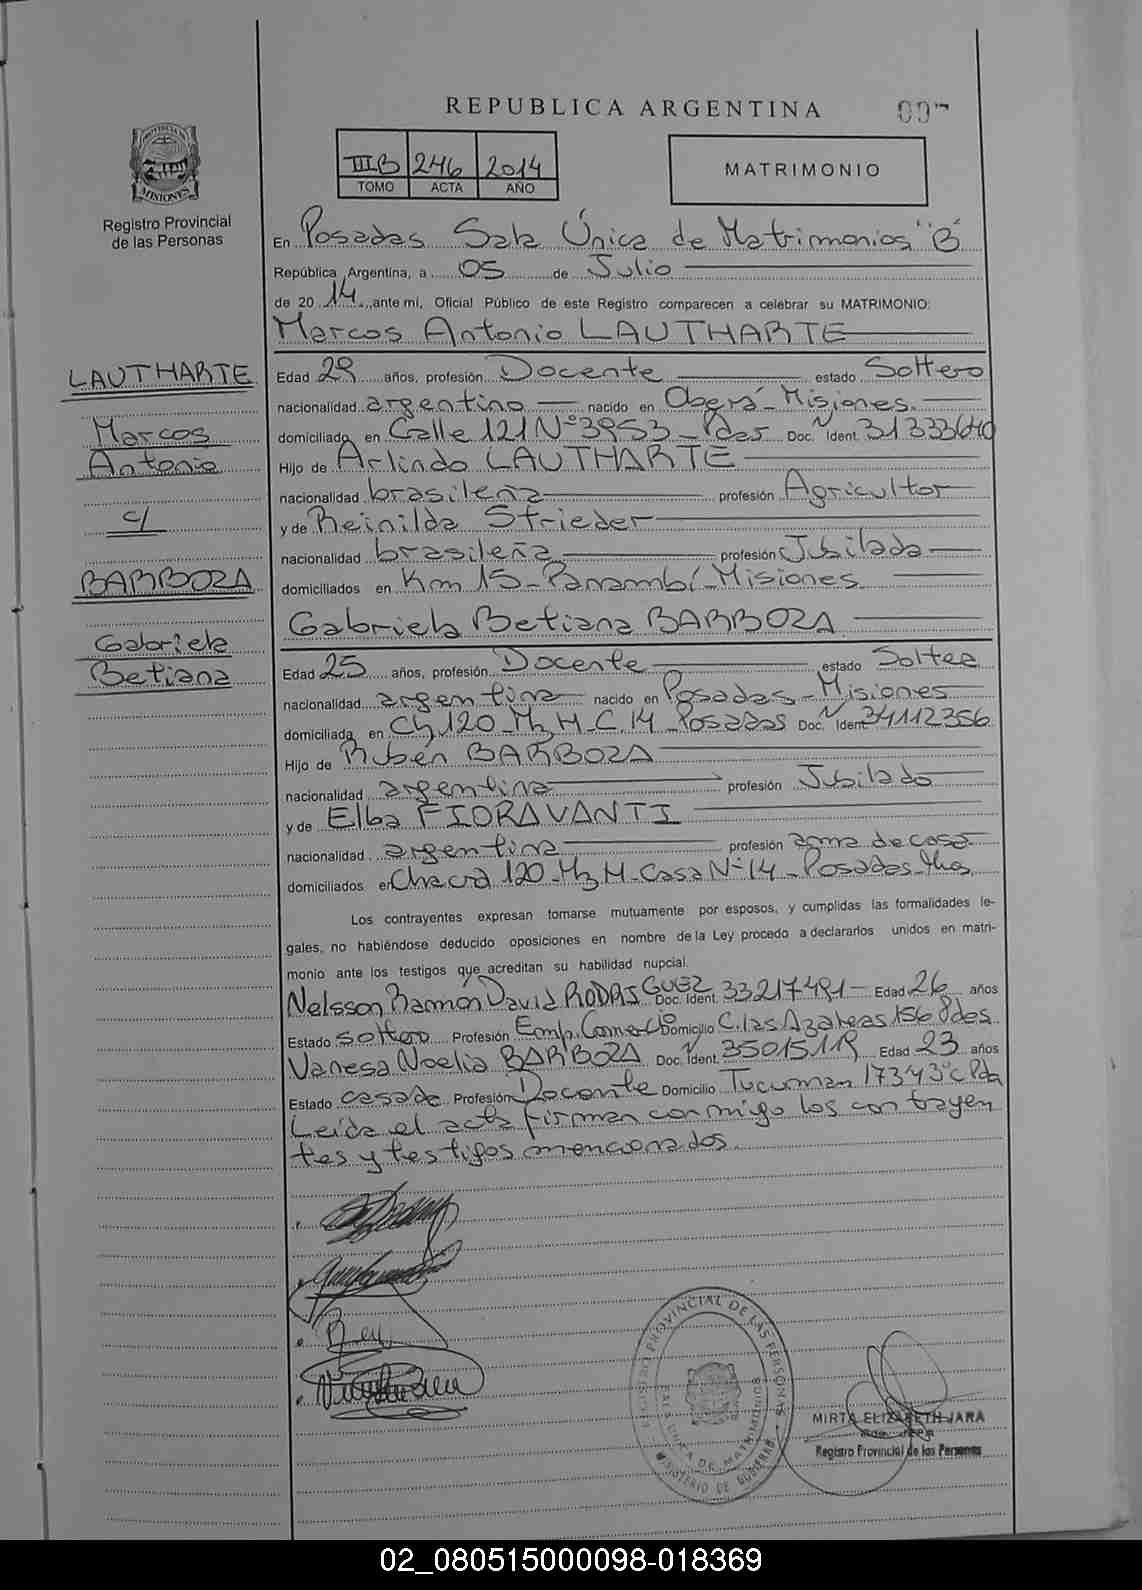 REPUBLICA ARGENTINA
III.B 246 2014
TOMO ACTA AÑO
MATRIMONIO
PROVINCIA DE MISIONES
Registro Provincial
de las Personas
En Posadas Sala Única de Matrimonios "B"
República Argentina, a 05 de Julio
de 2014, ante mi, Oficial Público de este Registro comparecen a celebrar su MATRIMONIO:
Marcos Antonio LAUTHARTE
LAUTHARTE
Marcos
Antonio
c/
BARBOZA
Gabriela
Betiana
Edad 29 años, profesión Docente estado Soltero
nacionalidad argentino nacido en Oberá - Misiones.
domiciliado en Calle 121 Nº 3953 - Pdas Doc. N Ident. 31333640
Hijo de Arlindo LAUTHARTE
nacionalidad brasileña profesión Agricultor
y de Reinilda Strieder
nacionalidad brasileña profesión Jubilada
domiciliados en Km 15 - Panambí - Misiones
Gabriela Betiana BARBOZA
Edad 25 años, profesión Docente estado Soltera
nacionalidad argentina nacido en Posadas - Misiones
domiciliada en Ch. 120 Mz M C. 14 - Posadas Doc. N Ident 34112356
Hijo de Rubén BARBOZA
nacionalidad argentina profesión Jubilado
y de Elba FIORAVANTI
nacionalidad argentina profesión ama de casa
domiciliados en Chacra 120 - Mz M - Casa Nº 14 - Posadas - Mnes.
Los contrayentes expresan tomarse mutuamente por esposos, y cumplidas las formalidades le-
gales, no habiéndose deducido oposiciones en nombre de la Ley procedo a declararlos unidos en matri-
monio ante los testigos que acreditan su habilidad nupcial.
Nelsson Ramón David RODRIGUEZ Doc. Ident. 33217491 - Edad 26 años
Estado soltero Profesión Emp. Comercio Domicilio C. las Azaleas 156 Pdas
Vanesa Noelia BARBOZA Doc. N Ident. 35015119 Edad 23 años
Estado casada Profesión Docente Domicilio Tucuman 1734 3ºC Pda
Leída el acta firman conmigo los contrayen
tes y testigos mencionados.
REGISTRO PROVINCIAL DE LAS PERSONAS
SALA UNICA DE MATRIMONIOS
MINISTERIO DE GOBIERNO
MIRTA ELIZABETH JARA
Registro Provincial de las Personas
02_080515000098-018369